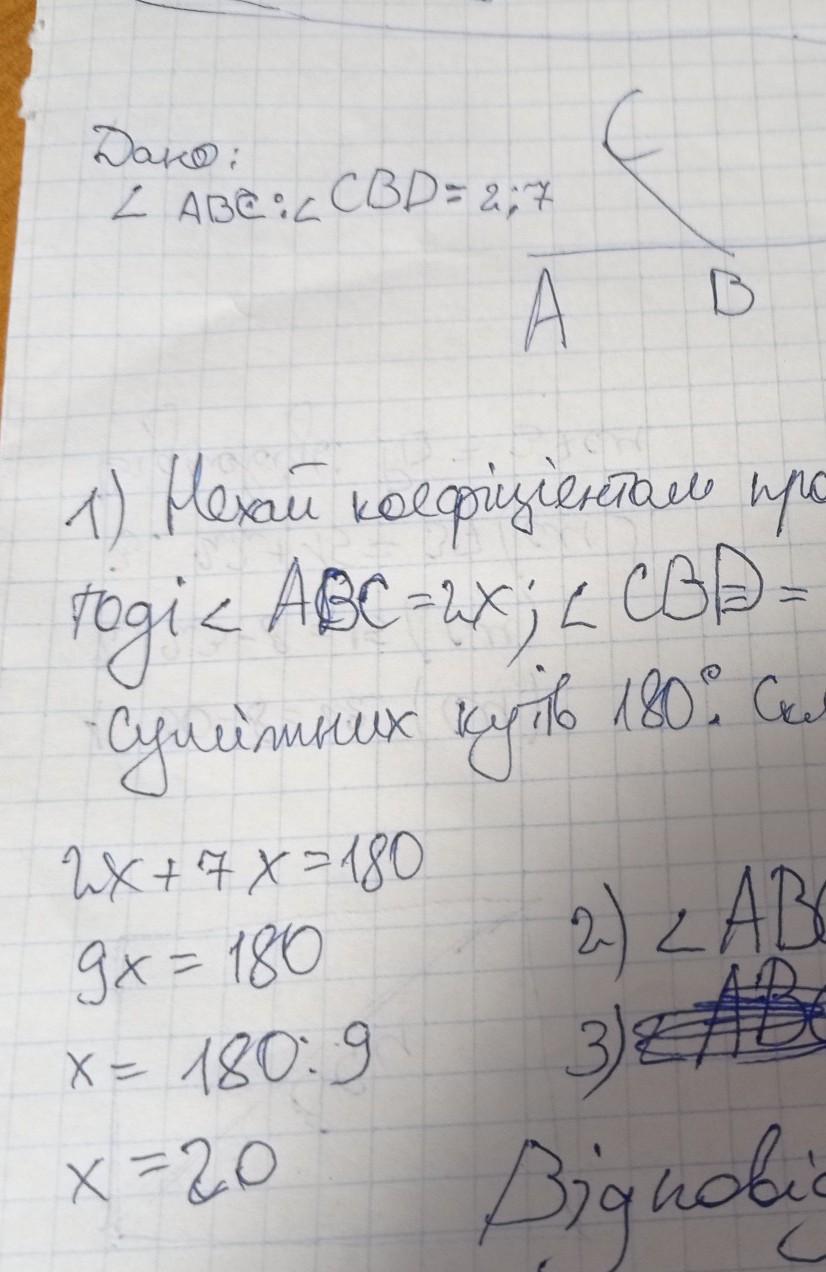 Дано:
∠ ABC:∠ CBD = 2:7
C
A
B
1) Нехай коефіцієнтом про
тоді ∠ ABC = 2x; ∠ CBD =
Суміжних кутів 180°. Скл
2x + 7x = 180
9x = 180
2) ∠ ABC
x = 180 : 9
3) ∠ ABC
x = 20
Відповід